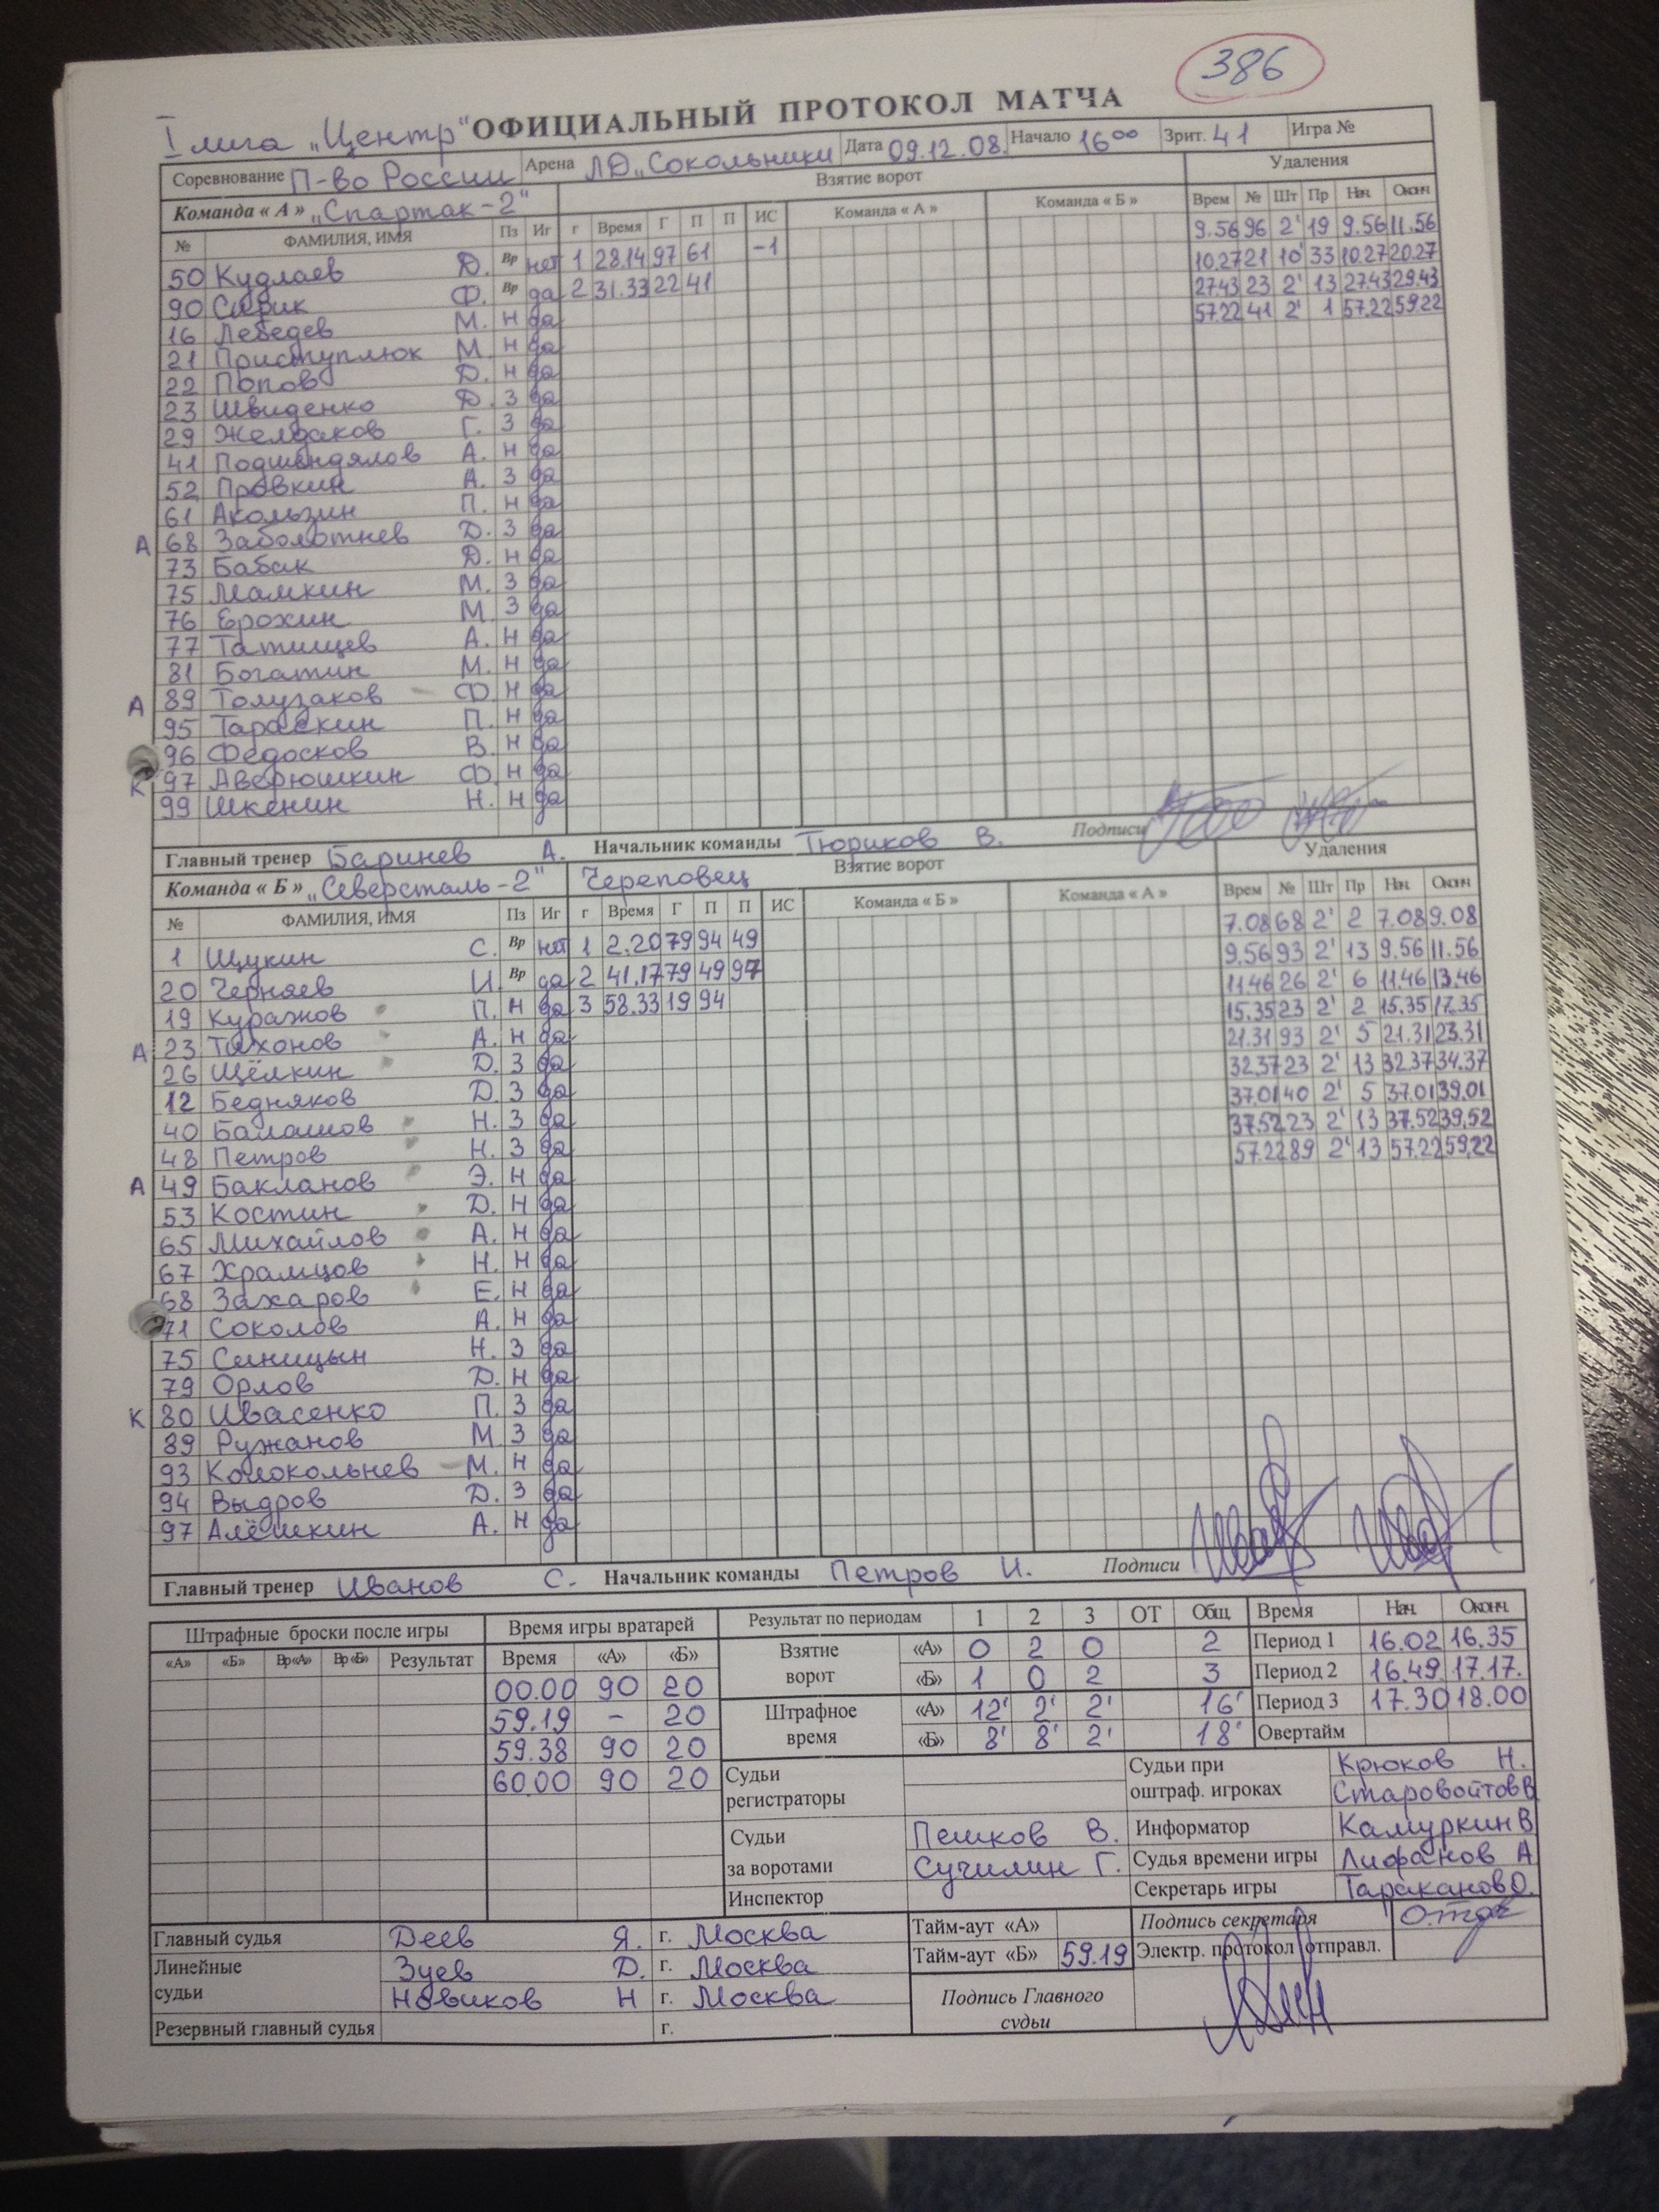 386
I лига „Центр" ОФИЦИАЛЬНЫЙ ПРОТОКОЛ МАТЧА
Соревнование П-во России Арена ЛД „Сокольники Дата 09.12.08. Начало 16 00 Зрит. 41 Игра №
Команда « А » „Спартак-2" Взятие ворот Удаления
№ ФАМИЛИЯ, ИМЯ Пз Иг г Время Г П П ИС Команда « А » Команда « Б » Врем № Шт Пр Нач. Оконч
50 Кудлаев Д. Вр нет 1 28.14 97 61 -1 9.56 96 2' 19 9.56 11.56
90 Сирик Ф. Вр да 2 31.33 22 41 10.27 21 10' 33 10.27 20.27
16 Лебедев М. Н да 27.43 23 2' 13 27.43 29.43
21 Приступлюк М. Н да 57.22 41 2' 1 57.22 59.22
22 Попов Д. Н да
23 Швиденко Д. З да
29 Желдаков Г. З да
41 Подшендялов А. Н да
52 Провкин А. З да
61 Акользин П. Н да
А 68 Заболотнев Д. З да
73 Бабак Д. Н да
75 Мамкин М. З да
76 Ерохин М. З да
77 Татищев А. Н да
81 Богатин М. Н да
А 89 Толузаков Ф. Н да
95 Тараскин П. Н да
96 Федосков В. Н да
К 97 Аверюшкин Ф. Н да
99 Шкенин Н. Н да
Главный тренер Баринев А. Начальник команды Тюриков В. Подписи
Команда « Б » „Северсталь-2" Череповец Взятие ворот Удаления
№ ФАМИЛИЯ, ИМЯ Пз Иг г Время Г П П ИС Команда « Б » Команда « А » Врем № Шт Пр Нач. Оконч
1 Щукин С. Вр нет 1 2.20 79 94 49 7.08 68 2' 2 7.08 9.08
20 Черняев И. Вр да 2 41.17 79 49 97 9.56 93 2' 13 9.56 11.56
19 Куражов П. Н да 3 58.33 19 94 11.46 26 2' 6 11.46 13.46
А 23 Тихонов А. Н да 15.35 23 2' 2 15.35 17.35
26 Щёлкин Д. З да 21.31 93 2' 5 21.31 23.31
12 Бедняков Д З да 32.37 23 2' 13 32.37 34.37
40 Балашов Н. З да 37.01 40 2' 5 37.01 39.01
48 Петров Н. З да 37.52 23 2' 13 37.52 39.52
А 49 Бакланов Э. Н да 57.22 89 2' 13 57.22 59.22
53 Костин Д. Н да
65 Михайлов А. Н да
67 Храмцов Н. Н да
68 Захаров Е. Н да
71 Соколов А. Н да
75 Синицын Н. З да
79 Орлов Д. Н да
К 80 Ивасенко П. З да
89 Ружанов М. З да
93 Колокольнев М. Н да
94 Выдров Д. З да
97 Алёшкин А. Н да
Главный тренер Иванов С. Начальник команды Петров И. Подписи
Штрафные броски после игры Время игры вратарей Результат по периодам 1 2 3 ОТ Общ. Время Нач. Оконч.
«А» «Б» Вр«А» Вр«Б» Результат Время «А» «Б» Взятие ворот «А» 0 2 0 2 Период 1 16.02 16.35
00.00 90 20 «Б» 1 0 2 3 Период 2 16.49. 17.17.
59.19 – 20 Штрафное время «А» 12' 2' 2' 16' Период 3 17.30 18.00
59.38 90 20 «Б» 8' 8' 2' 18' Овертайм
60.00 90 20 Судьи регистраторы Судьи при оштраф. игроках Крюков Н.
Старовойтов В
Судьи за воротами Пешков В. Информатор Камуркин В
Сучилин Г. Судья времени игры Лифанов А
Инспектор Секретарь игры Тараканов О.
Главный судья Деев Я. г. Москва Тайм-аут «А» Подпись секретаря
Линейные судьи Зуев Д. г. Москва Тайм-аут «Б» 59.19 Электр. протокол отправл.
Новиков Н г. Москва Подпись Главного судьи
Резервный главный судья г.